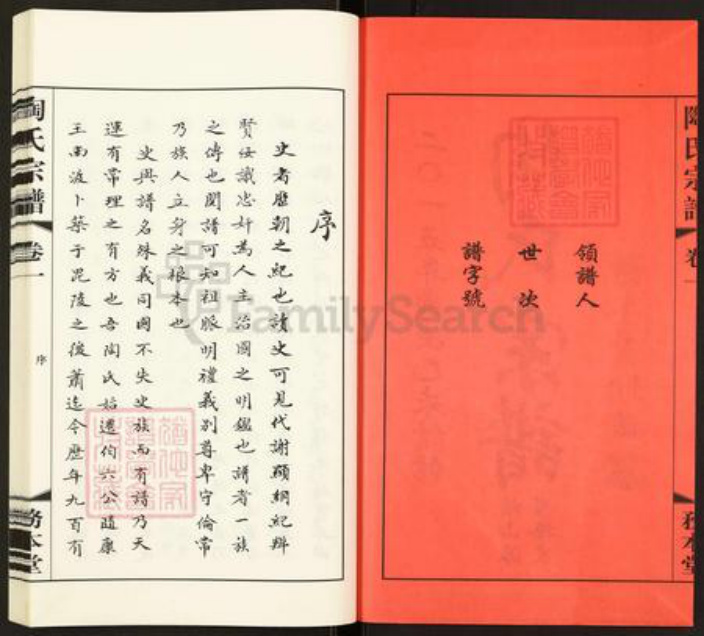 領譜人
世次
譜字號
陶氏宗譜
卷一
務本堂
序
史者歷朝之紀也讀史可見代謝顯綱紀辨
賢佞識忠奸為人主治國之明鑑也譜者一族
之傳也閱譜可知祖脈明禮義別尊卑守倫常
乃族人立身之根本也
史與譜名殊義同國不失史族而有譜乃天
運有常理之有方也吾陶氏始遷伯六公隨康
王南渡卜築于毘陵之後蕭迄今歷年九百有
陶氏宗譜
卷一
序
務本堂
FamilySearch